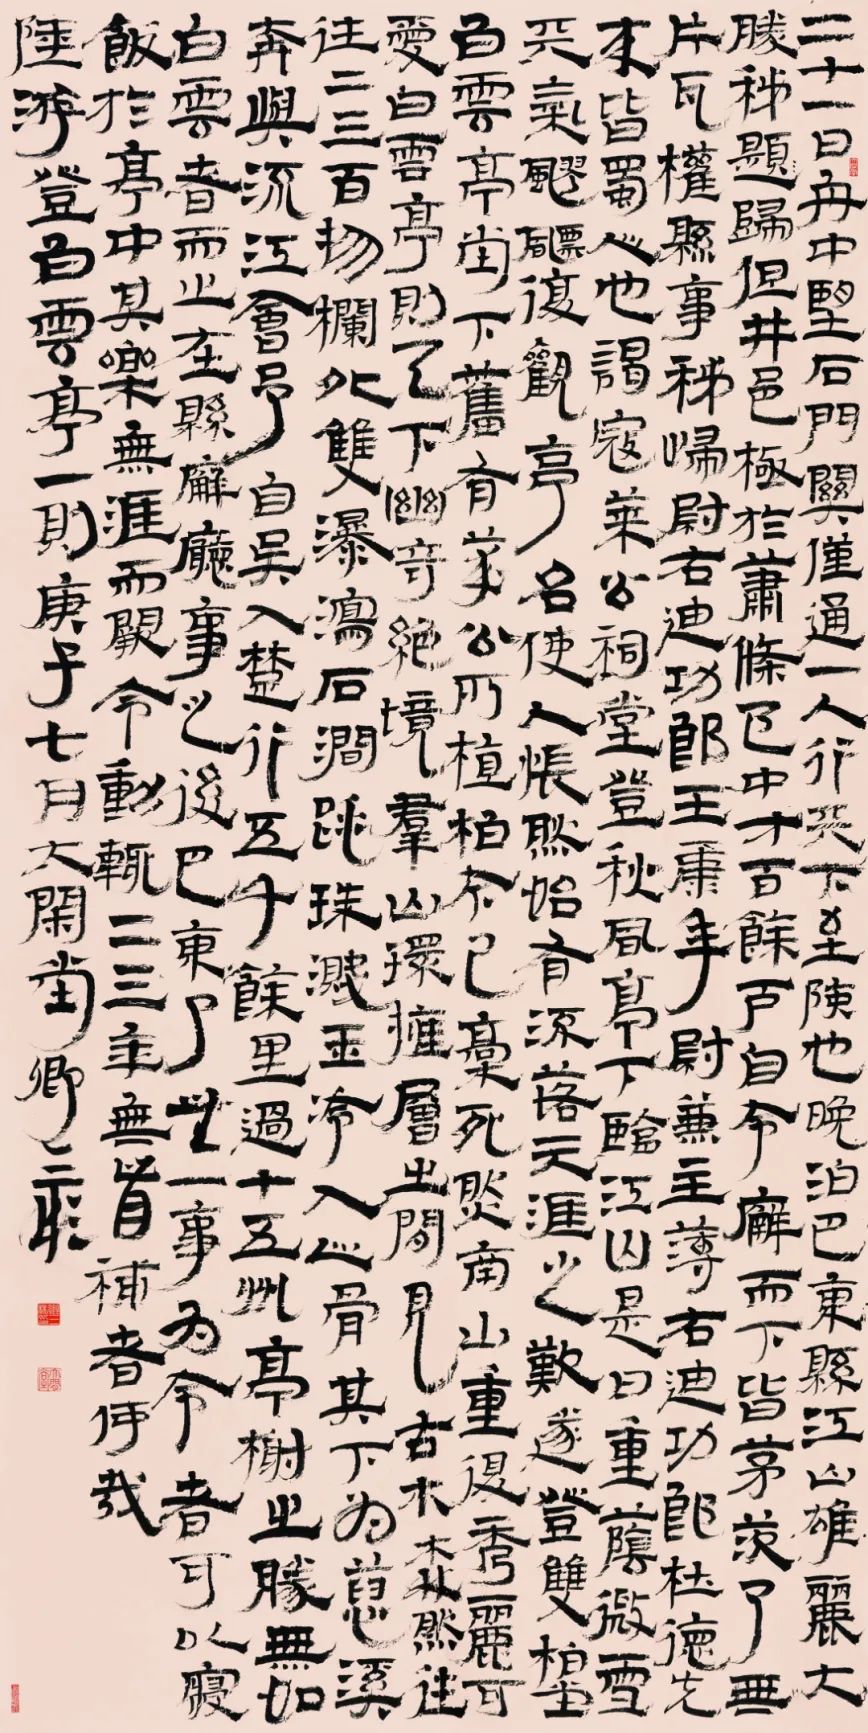 二十一日舟中望石門關僅通一人行天下至險也晚泊巴東縣江山雄麗大
勝秭題歸但井邑極於蕭條邑中才百餘戶自令廨而下皆茅茨了無
片瓦權縣事秭歸尉右迪功郎王康年尉兼主薄右迪功郎杜德先
來皆蜀人也謁寇萊公祠堂登秋風亭下臨江山是日重蔭微雪
天氣飂飄復觀亭名使人悵然始有流落天涯之歎遂登雙柏堂
白雲亭堂下舊有萊公所植柏今已槀死然南山重復秀麗可
愛白雲亭則天下幽奇絕境羣山環擁層出間見古木森然往
往二三百物欄外雙瀑瀉石澗跳珠濺玉冷入人骨其下為慈溪
奔與流江會予自吳入楚行五千餘里過十五州亭榭之勝無如
白雲者而止在縣廨廳事之後巴東了無一事為令者可以寢
飯於亭中其樂無涯而闕令動輒二三年無肯補者何哉
陸游登白雲亭一則庚子七月大閑堂卿